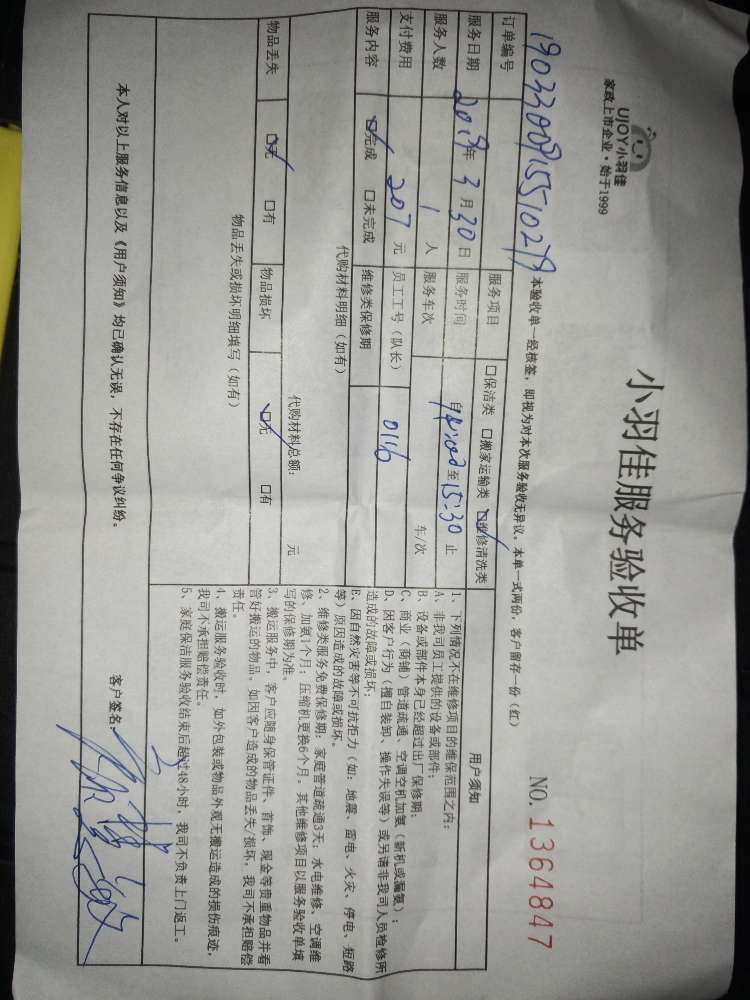 UJOY小羽佳
家政上市企业·始于1999
小羽佳服务验收单
NO. 1364847
本验收单一经核签，即视为对本次服务验收无异议，本单一式两份，客户留存一份（红）
订单编号 服务项目 ☐保洁类 ☐搬家运输类 ☑维修清洗类
服务日期 2019年 3月 30日 服务时间 自 至15:30 止
服务人数 1 人 服务车次 车/次
支付费用 207 元 员工工号（队长） 0116
服务内容 ☑完成 ☐未完成 维修类保修期
代购材料明细（如有）
代购材料总额： 元
物品丢失 ☑无 ☐有 物品损坏 ☑无 ☐有
物品丢失或损坏明细填写（如有）
用户须知
1、下列情况不在维修项目的维保范围之内：
A、非我司员工提供的设备或部件；
B、设备或部件本身已经超过出厂保修期；
C、商业（商铺）管道疏通、空调空机加氨（新机或漏氨）；
D、因客户行为（擅自装卸、操作失误等）或另请非我司人员检修所
造成的故障或损坏；
E、因自然灾害等不可抗拒力（如：地震、雷电、火灾、停电、短路
等）原因造成的故障或损坏。
2、维修类服务免费保修期：家庭管道疏通3天；水电维修、空调维
修、加氨1个月；压缩机更换6个月，其他维修项目以服务验收单填
写的保修期为准。
3、搬运服务中，客户应随身保管证件、首饰、现金等贵重物品并看
管好搬运的物品，如因客户造成的物品丢失/损坏，我司不承担赔偿
责任。
4、搬运服务验收时，如外包装或物品外观无搬运造成的损伤痕迹，
我司不承担赔偿责任。
5、家庭保洁服务验收结束后超过48小时，我司不负责上门返工。
本人对以上服务信息以及《用户须知》均已确认无误，不存在任何争议纠纷。
客户签名：